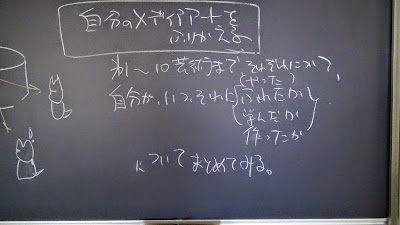 自分のメディアアートを
ふりかえる
第1〜10芸術まで それぞれについて、
(やった)
自分が、いつ、それにふれたか
学んだか
作ったか
についてまとめてみる。